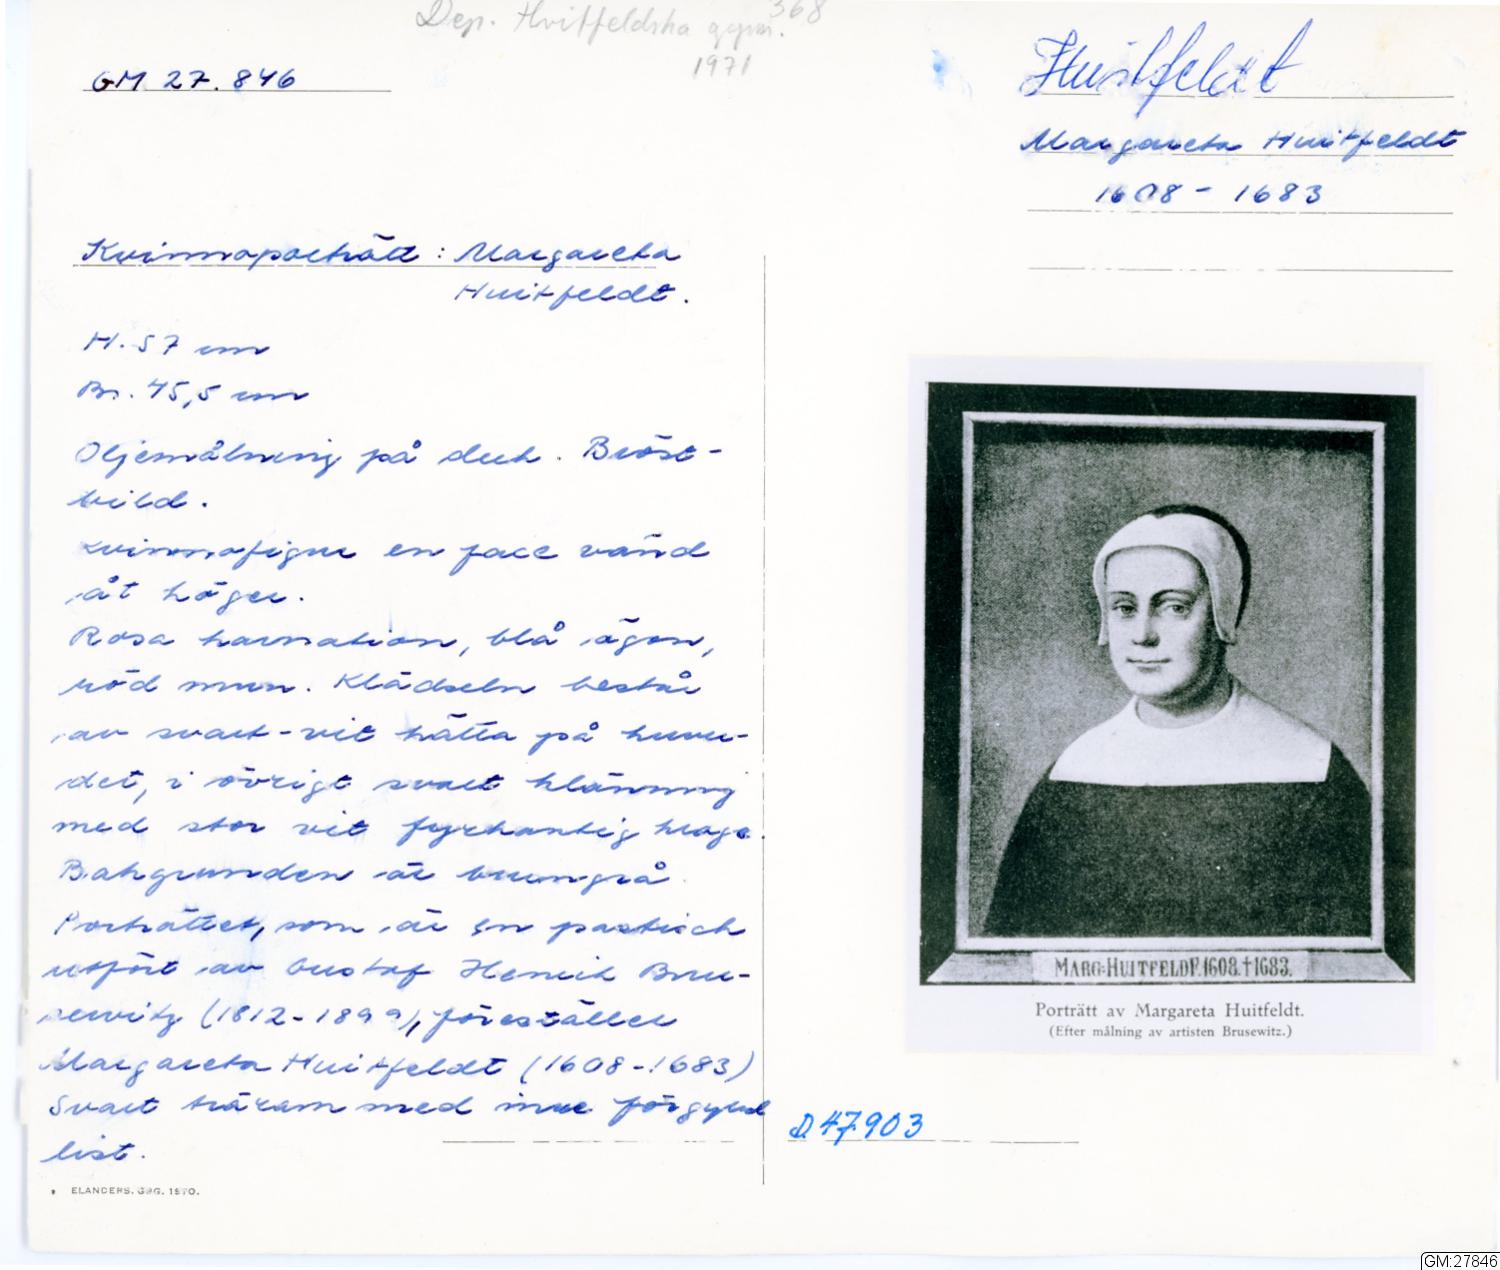 Dep. Hvitfeldska gym. 368
1971
GM 27.846
Huitfeldt
Margareta Huitfeldt
1608 - 1683
Kvinnoporträtt: Margareta
Huitfeldt.
H. 57 cm
Br. 45,5 cm
Oljemålning på duk. Bröst-
bild.
Kvinnofigur en face vänd
åt höger.
Rosa karnation, blå ögon,
röd mun. Klädseln består
av svart-vit hätta på huvu-
det, i övrigt svart klänning
med stor vit fyrkantig krage.
Bakgrunden är brungrå.
Porträttet, som är en pastisch
utfört av Gustaf Henrik Bru-
sewitz (1812-1899), föreställer
Margareta Huitfeldt (1608-1683)
Svart träram med inre förgylld
list.
ELANDERS. GBG. 1970.
MARG:HUITFELDT.1608.†1683.
Porträtt av Margareta Huitfeldt.
(Efter målning av artisten Brusewitz.)
D.47903
GM:27846